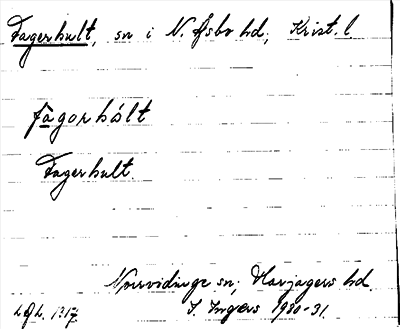 Fagerhult, sn i N. Åsbo hd, Krist. l.
fågorhúlt
Fagerhult.
Norrvidinge sn, Harjagers hd.
I. Ingers 1930-31.